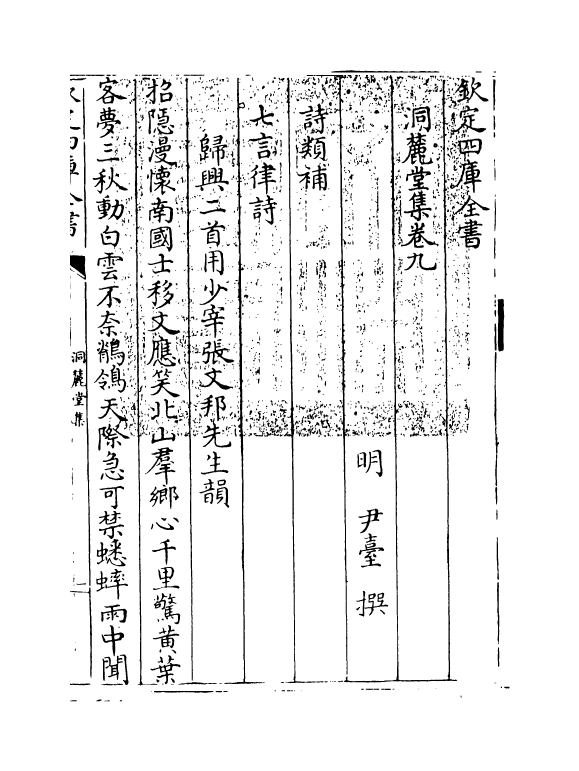 欽定四庫全書
洞麓堂集卷九
明 尹臺 撰
詩類補
七言律詩
歸興二首用少宰張文邦先生韻
招隠漫懷南國士移文應笑北山羣鄉心千里驚黄葉
客夢三秋動白雲不奈鶺鴒天際急可禁蟋蟀雨中聞
洞麓堂集